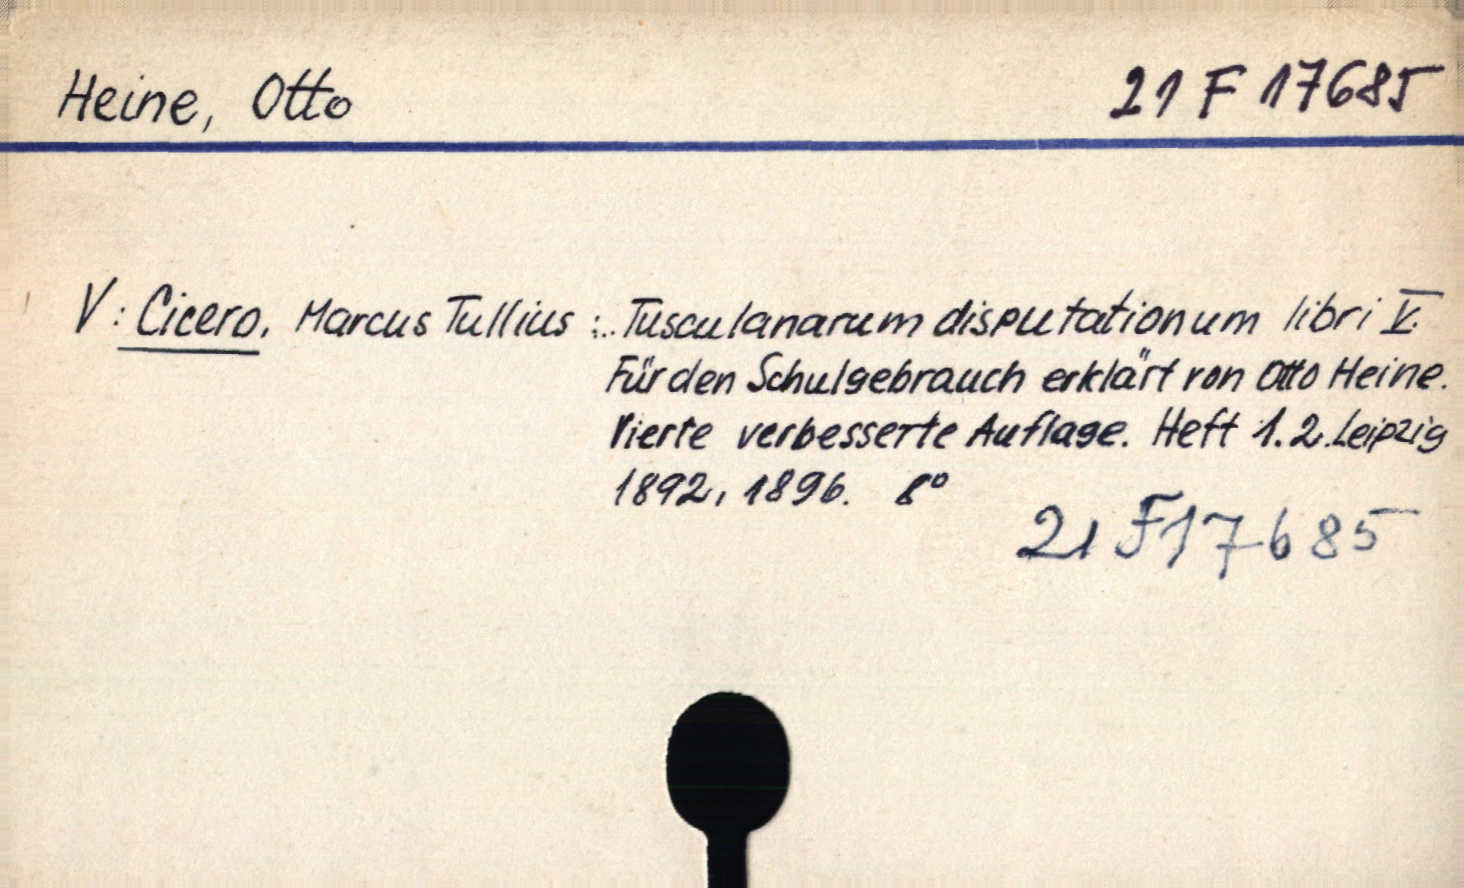 Heine, Otto 21 F 17685
V: Cicero, Marcus Tullius :.. Tusculanarum disputationum libri V.
Für den Schulgebrauch erklärt von Otto Heine.
Vierte verbesserte Auflage. Heft 1. 2. Leipzig
1892, 1896. 8°
21 F 17685